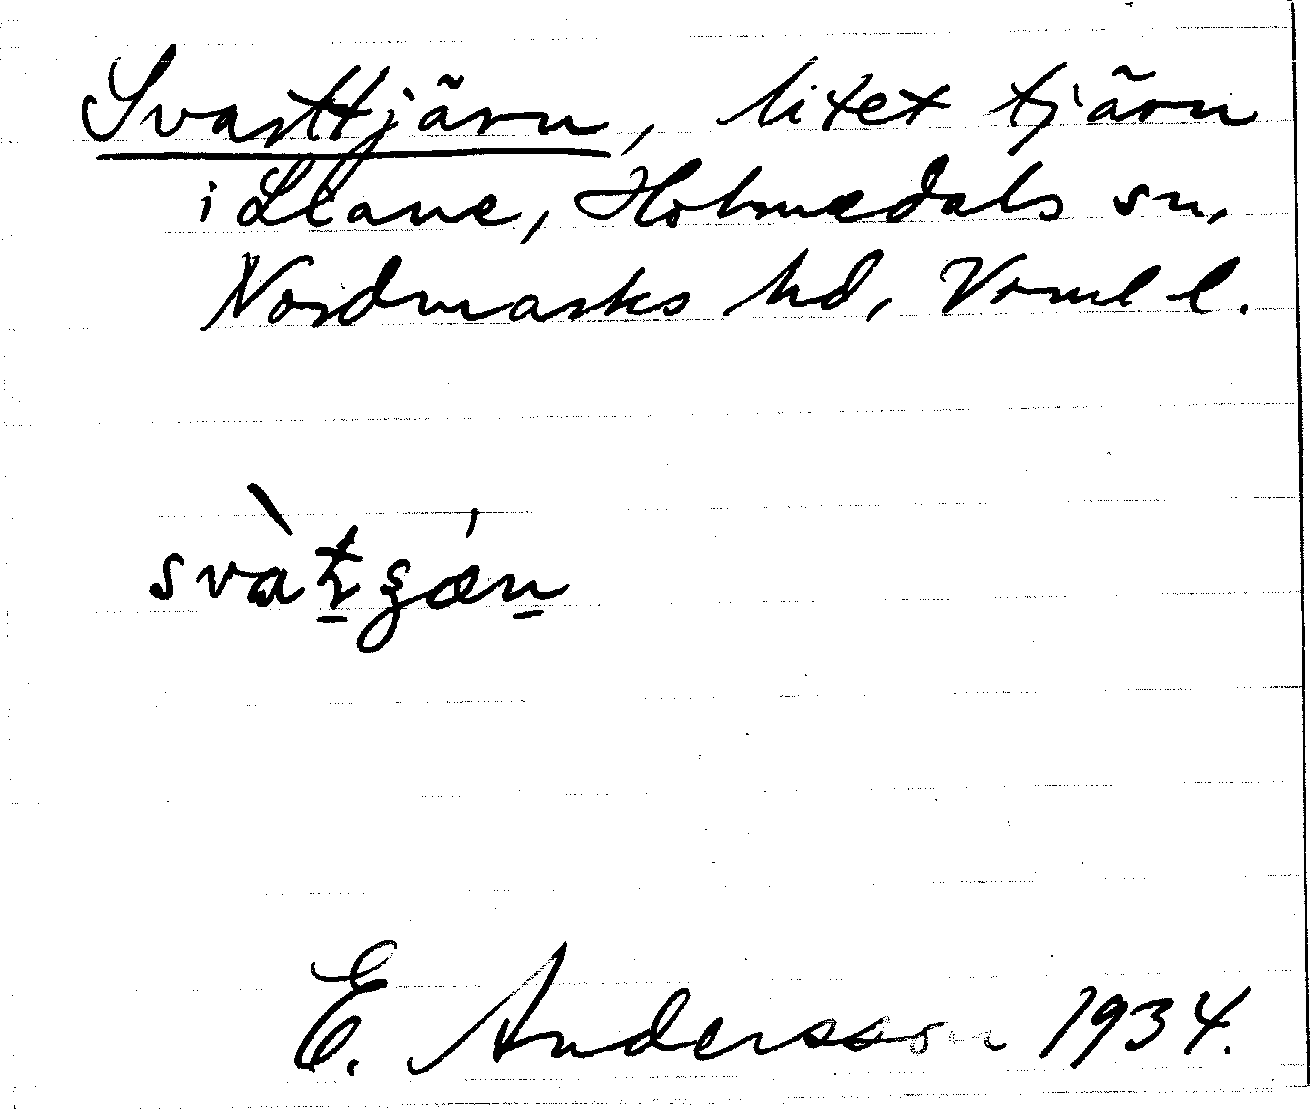 Svarttjärn, litet tjärn
i Llane, Holmedals sn,
Nordmarks hd, Vrml l.
E. Andersson 1934.